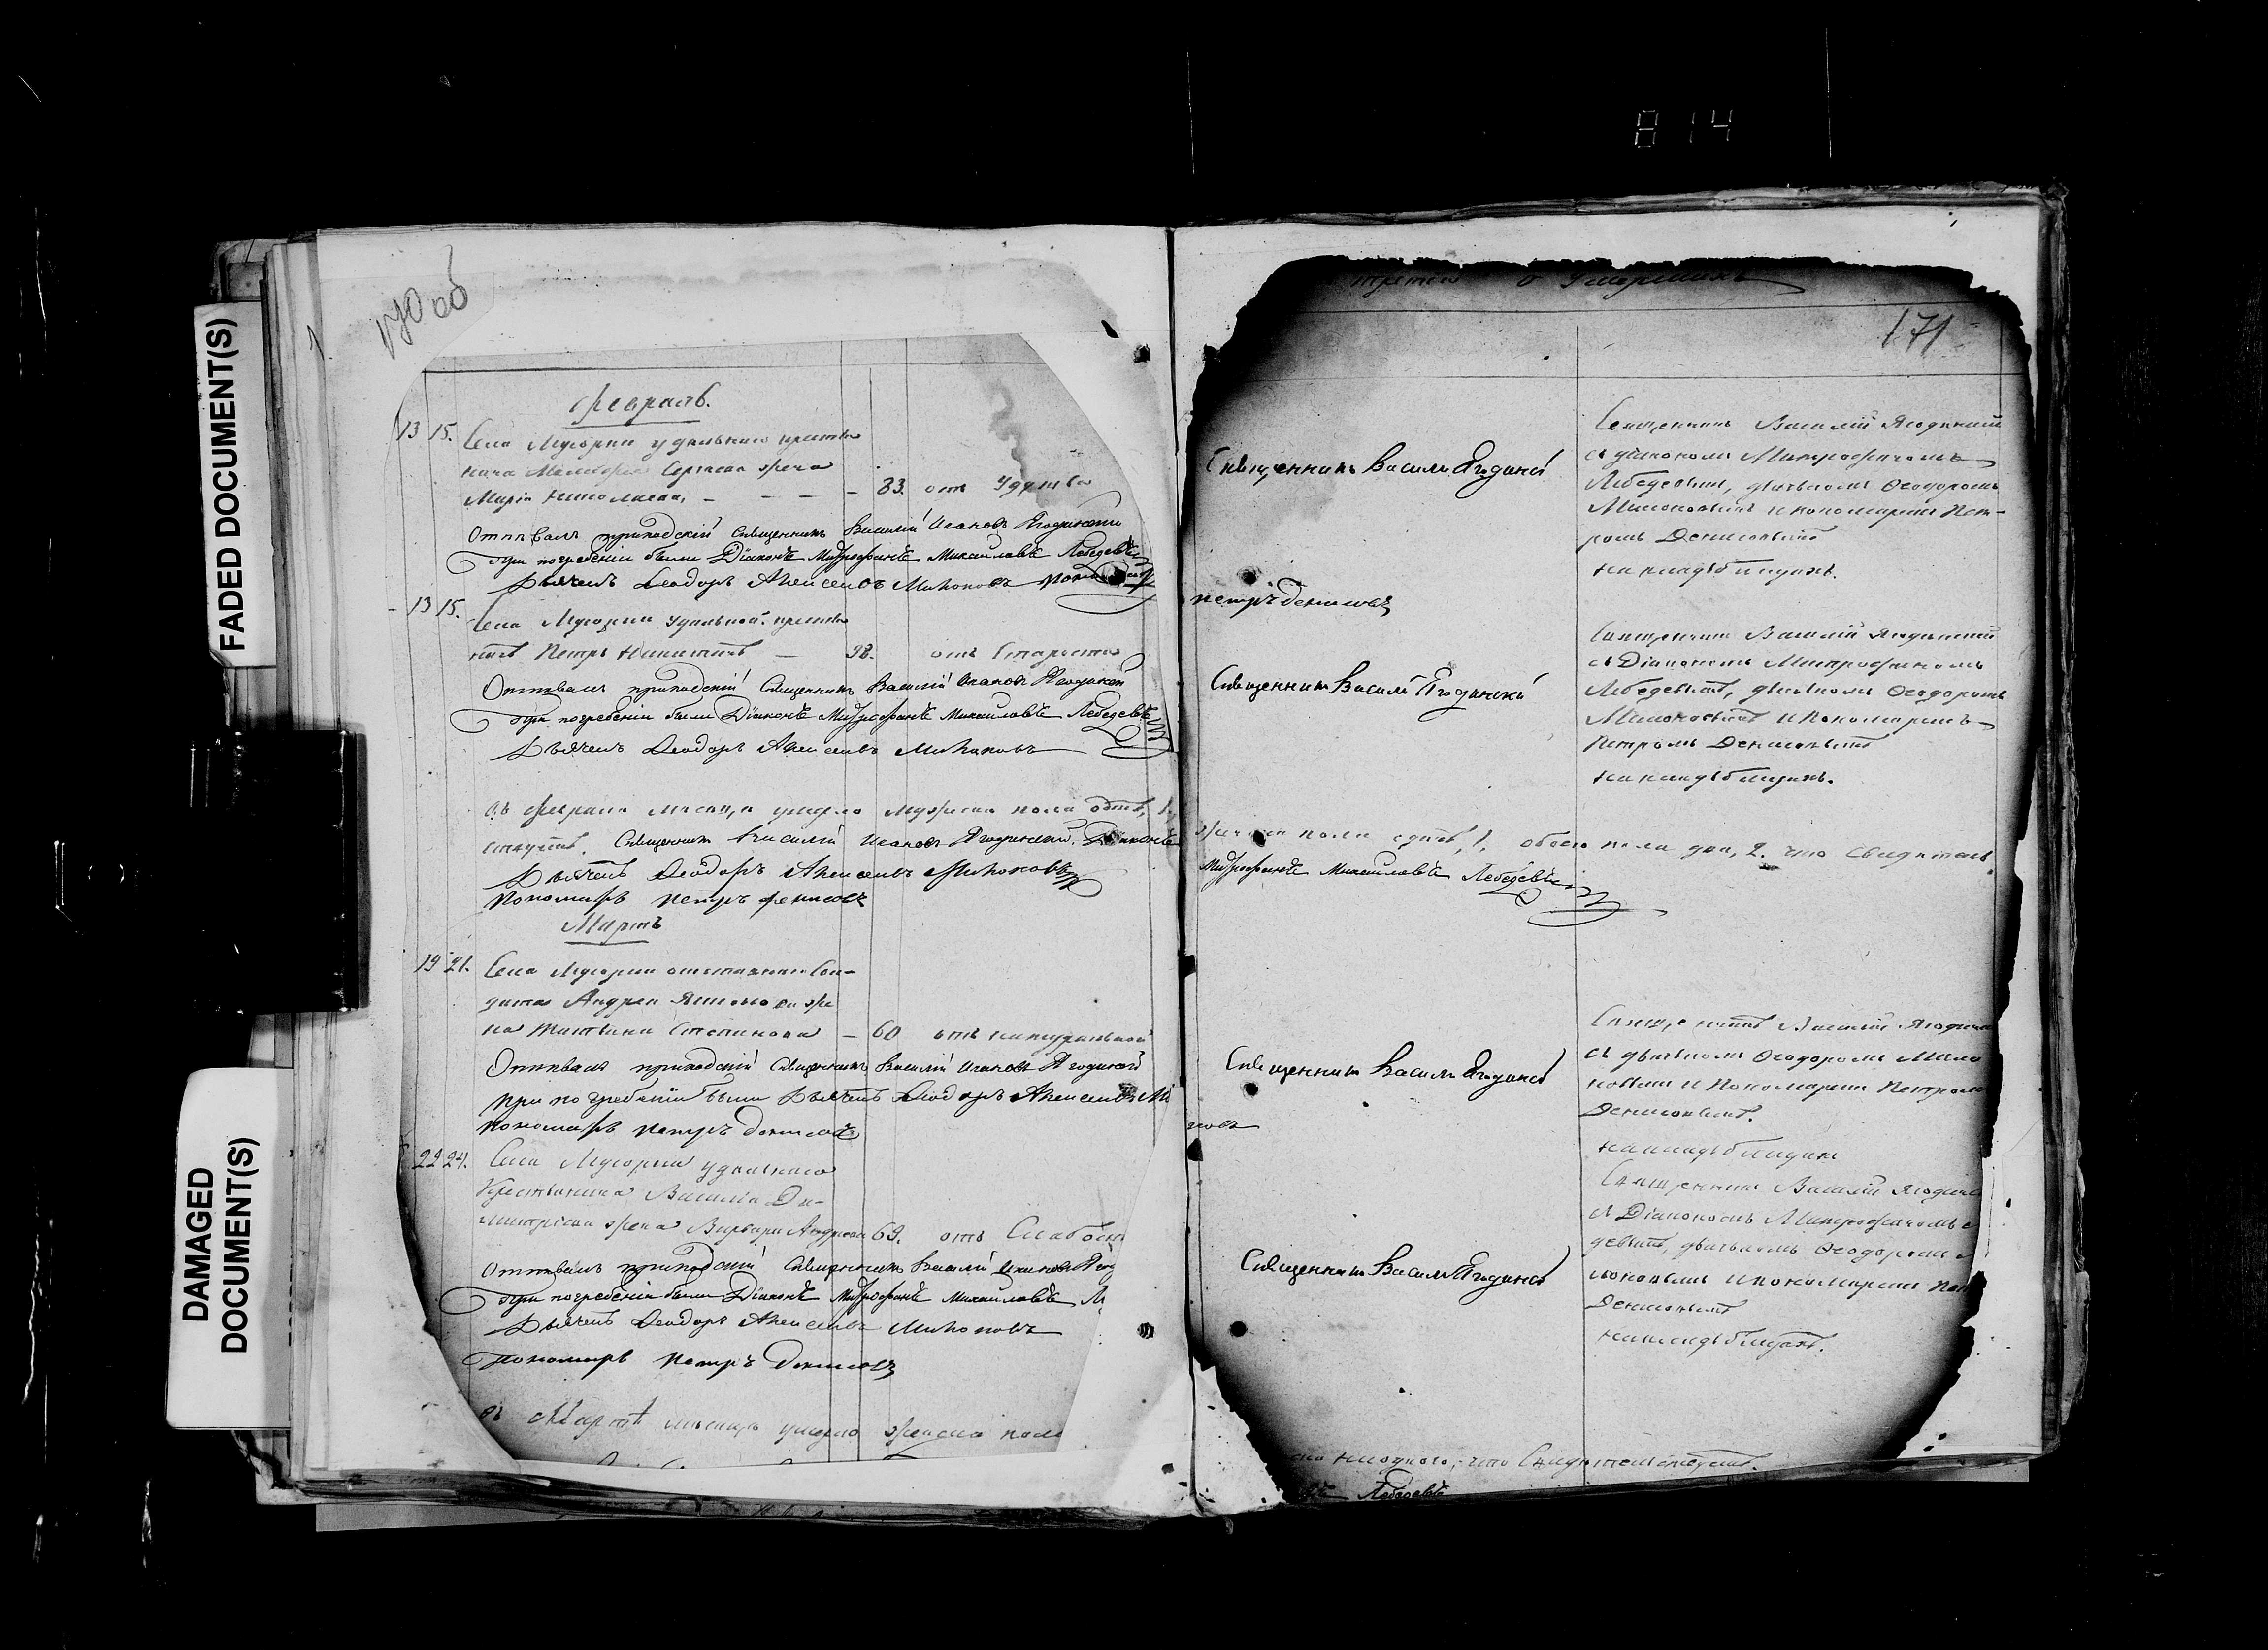 814
FADED DOCUMENT(S)
DAMAGED
DOCUMENT(S)
170 об
Февраль.
13 15. Села Мусорки удельнаго крестья
Сергеева жена
Марья Николаева, - - - - 83. отъ удушья
Отпевалъ приходскій Священникъ Василій Иоановъ Ягодинскій
При погребеніи были Діаконъ Митрофанъ Михайловъ Лебедевъ
Дьячекъ Феодоръ Алексеевъ Милоновъ
13 15. Села Мусорки удельной крестья
нинъ Петръ Никитинъ — 98. отъ Старости
Отпевалъ приходскій Священникъ Василій Иоановъ Ягодинскій
При погребеніи были Діаконъ Митрофанъ Михайловъ Лебедевъ
Дьячекъ Феодоръ Алексеевъ Милоновъ
въ Феврале месяце умерло мужеска пола одинъ, 1.
Священникъ Василій Иоановъ Ягодинскій. Діаконъ
Дьячекъ Феодоръ Алексеевъ Милоновъ
Пономарь Петръ Денисовъ
Мартъ
19 21. Села Мусорки отставнаго Сол-
дата Андрея же
на Татьяна Степанова — 60 отъ натуральной
Отпевалъ приходскій Священникъ Василій Иоановъ Ягодинской
При погребеніи были Дьячекъ Феодоръ Алексеевъ Ми
Пономарь Петръ Денисовъ
22 24. Села Мусорки удельнаго
Крестьянина Василья Ди-
митріева жена Варвара Андреева 69. отъ Слабости
Отпевалъ приходскій Священникъ Василій Иоановъ Ягод
При погребеніи были Діаконъ Митрофанъ Михайловъ Л
Дьячекъ Феодоръ Алексеевъ Милоновъ
Пономарь Петръ Денисовъ
въ Марте месяце умерло женска пола
третія о Умершихъ
171
Священникъ Василій Ягодинскій
Петръ Денисовъ
Священникъ Василій Ягодинскій
женска пола одна, 1. обоего пола два, 2. что Свидетель
Митрофанъ Михайловъ Лебедевъ
Священникъ Василій Ягодинскій
новъ
Священникъ Василій Ягодинскій
Священникъ Василій Ягодинскій
съ діакономъ Митрофаномъ
Лебедевымъ, дьячкомъ Феодоромъ
Милоновымъ и пономаремъ Пет-
ромъ Денисовымъ
на кладбище.
Священникъ Василій Ягодинскій
съ Діакономъ Митрофаномъ
Лебедевымъ, дьячкомъ Феодоромъ
Милоновымъ и Пономаремъ
Петромъ Денисовымъ
на кладбище.
Священникъ Василій Ягодинс
съ дьячкомъ Феодоромъ Мило
новымъ и Пономаремъ Петромъ
Денисовымъ.
на кладбище
Священникъ Василій Ягодинс
съ Діакономъ Митрофаномъ
девымъ, дьячкомъ Феодоромъ
лоновымъ и пономаремъ Пет
Денисовымъ
на кладбище.
ни одного, что Свидетельствуютъ.
Лебедевъ